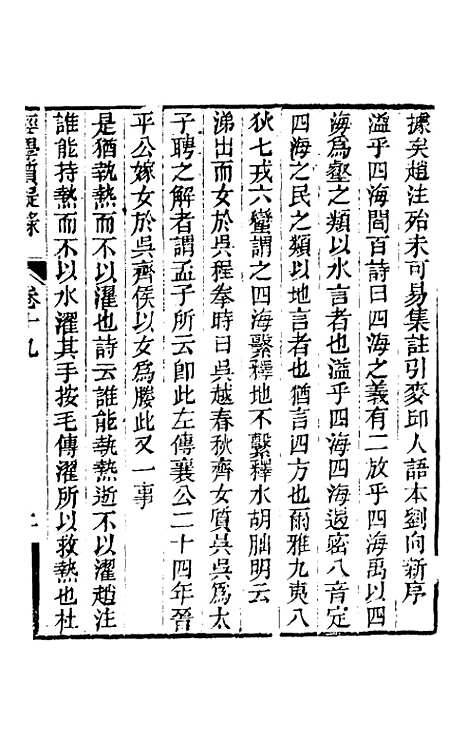 據矣趙注殆未可易集註引麥邱人語本劉向新序
溢乎四海閻百詩曰四海之義有二放乎四海禹以四
海爲壑之類以水言者也溢乎四海四海遏密八音定
四海之民之類以地言者也猶言四方也爾雅九夷八
狄七戎六蠻謂之四海繫釋地不繫釋水胡朏明云
涕出而女於吳程拳時曰吳越春秋齊女質吳吳爲太
子聘之解者謂孟子所云卽此左傳襄公二十四年晉
平公嫁女於吳齊侯以女爲媵此又一事
是猶執熱而不以濯也詩云誰能執熱逝不以濯趙注
誰能持熱而不以水濯其手按毛傳濯所以救熱也杜
經學質疑錄 卷十九